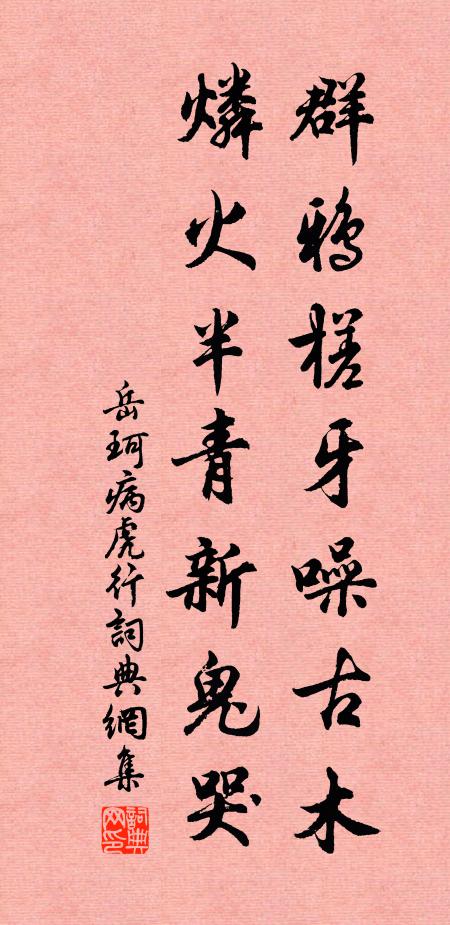 群鴉槎牙噪古木
燐火半青新鬼哭
岳珂病虎行詞典網集
詞典网印